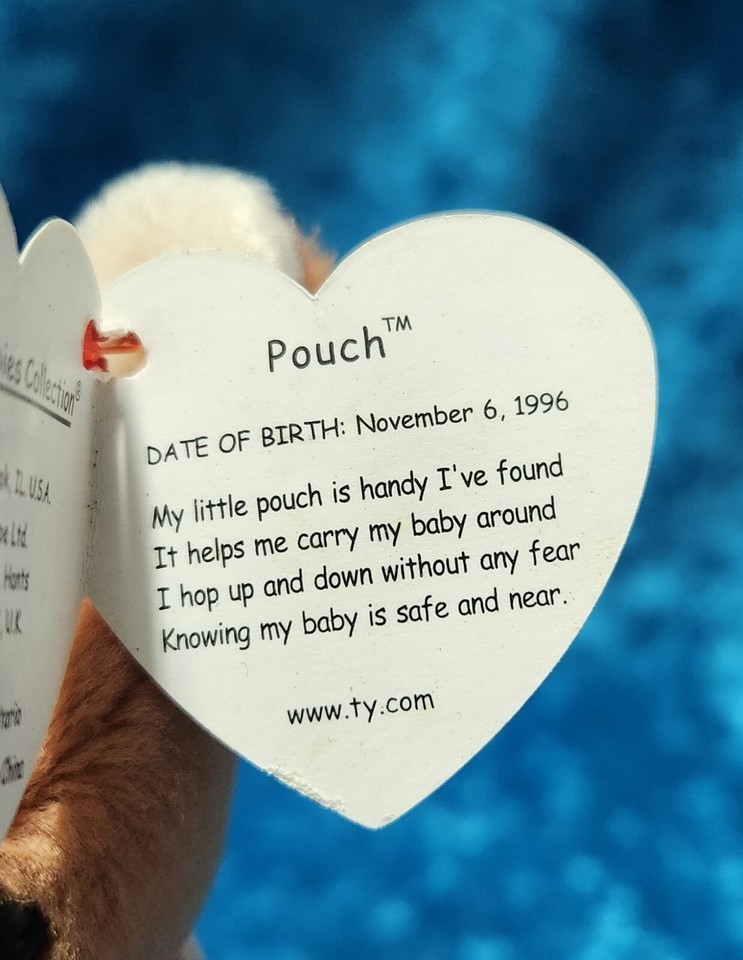 Collection®
IL U.S.A.
Ltd.
Hants
U.K.
China
Pouch™
DATE OF BIRTH: November 6, 1996
My little pouch is handy I've found
It helps me carry my baby around
I hop up and down without any fear
Knowing my baby is safe and near.
www.ty.com